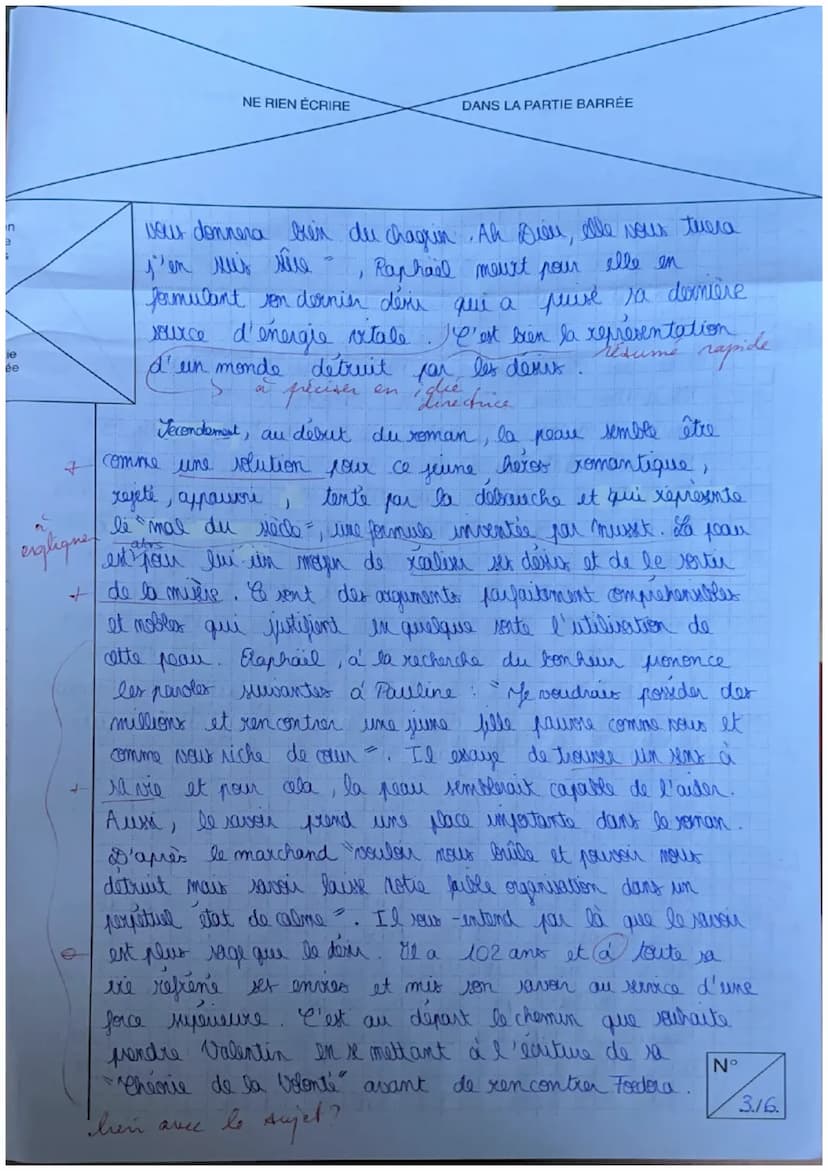 NE RIEN ÉCRIRE DANS LA PARTIE BARRÉE
vous donnera bien du chagrin. Ah Dieu, elle vous tuera
j'en suis sûre", Raphaël meurt pour elle en
formulant son dernier désir qui a puisé sa dernière
source d'énergie vitale. C'est bien la représentation
résumé rapide
d'un monde détruit par les désirs.
à préciser en idée
directrice
Secondement, au début du roman, la peau semble être
+ comme une solution pour ce jeune héros romantique,
rejeté, appauvri, tenté par la débauche et qui représente
à expliquer
le "mal du siècle", une formule inventée par Musset. La peau
est alors pour lui un moyen de réaliser ses désirs et de le sortir
+ de la misère. Ce sont des arguments parfaitement compréhensibles
et nobles qui justifient en quelque sorte l'utilisation de
cette peau. Raphaël, à la recherche du bonheur prononce
les paroles suivantes à Pauline : "Je voudrais posséder des
millions et rencontrer une jeune fille pauvre comme vous et
comme vous riche de cœur". Il essaye de trouver un sens à
+ sa vie et pour cela, la peau semblerait capable de l'aider.
Aussi, le savoir prend une place importante dans le roman.
D'après le marchand "vouloir nous brûle et pouvoir nous
détruit mais savoir laisse notre faible organisation dans un
perpétuel état de calme". Il sous-entend par là que le savoir
est plus sage que le désir. Il a 102 ans et à toute sa
vie réfréné ses envies et mis son savoir au service d'une
force supérieure. C'est au départ le chemin que souhaite
prendre Valentin en se mettant à l'écriture de sa
"Théorie de la Volonté" avant de rencontrer Foedora.
lien avec le sujet?
N°
3/6.